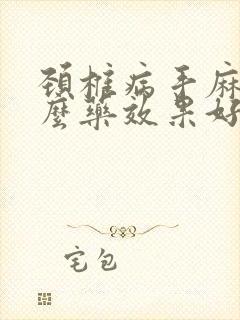 颈椎病手麻
麼藥效果好
宅包